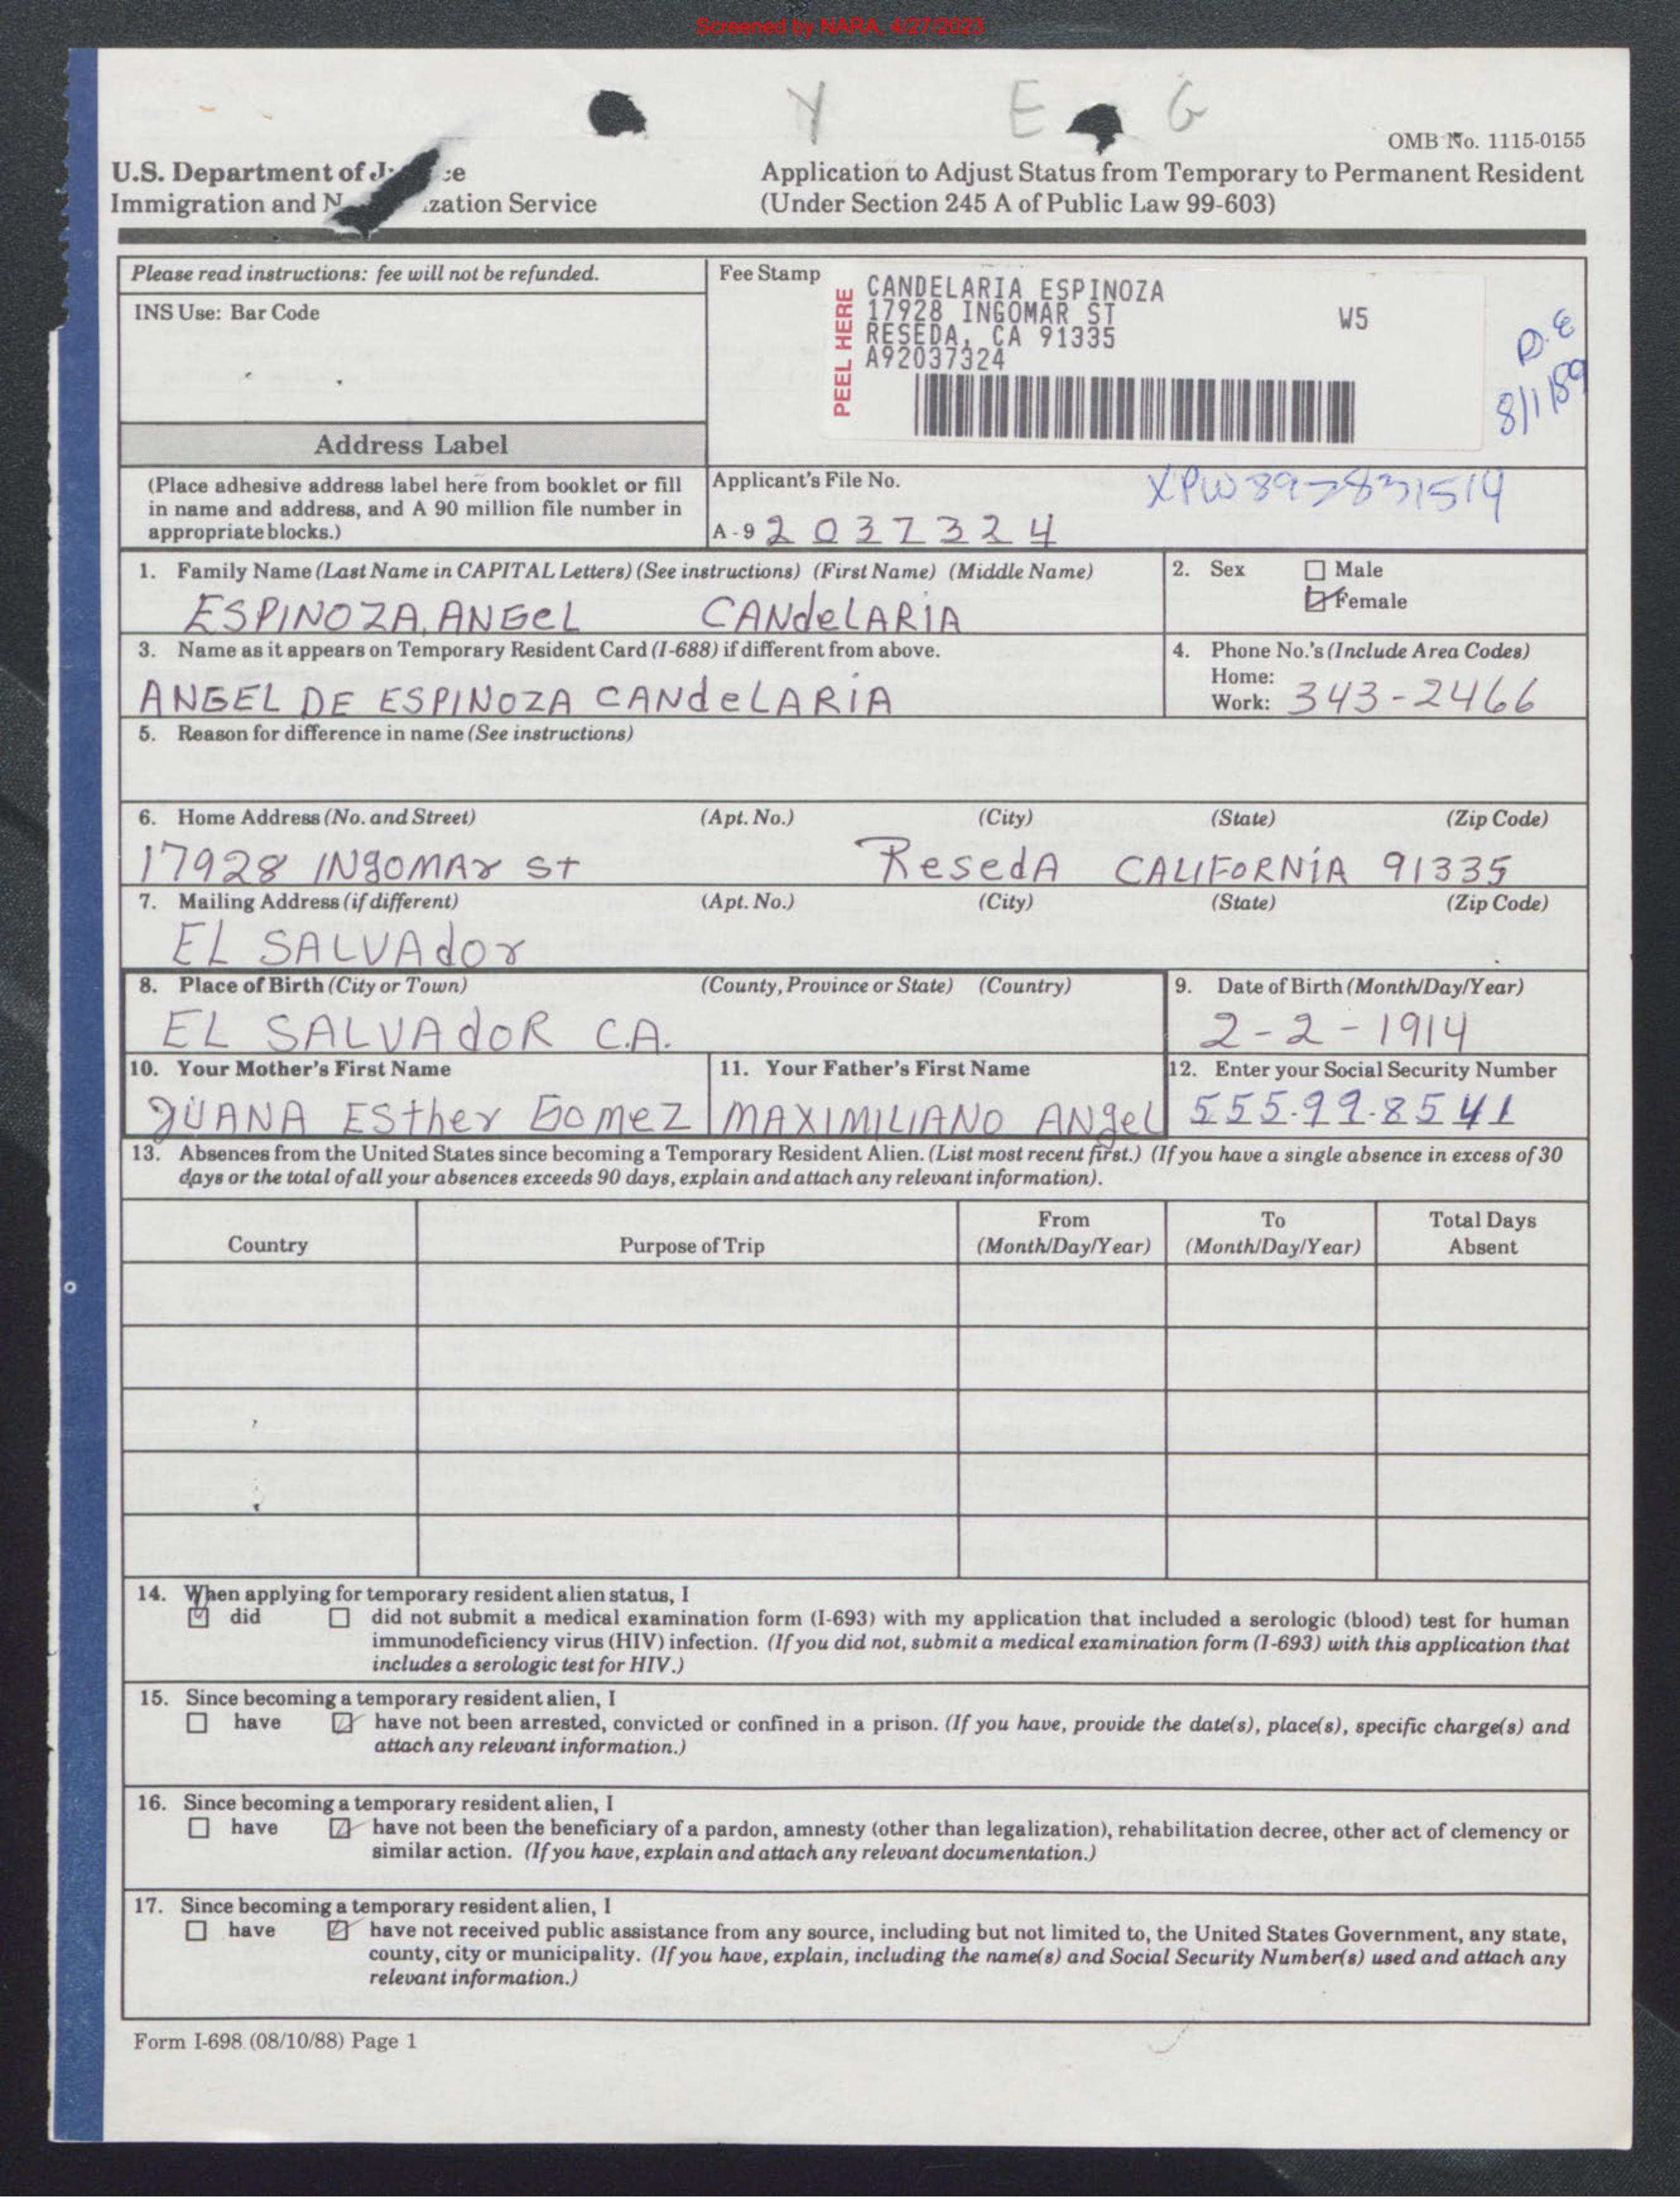 Screened by NARA, 4/27/2023
Y E G
OMB No. 1115-0155
U.S. Department of
Immigration and
Application to Adjust Status from Temporary to Permanent Resident
(Under Section 245 A of Public Law 99-603)
Please read instructions: fee will not be refunded.
INS Use: Bar Code
Fee Stamp
PEEL HERE
CANDELARIA ESPINOZA
17928 INGOMAR ST
RESEDA, CA 91335
A92037324
W5
8/1/89
Address Label
(Place adhesive address label here from booklet or fill
in name and address, and A 90 million file number in
appropriate blocks.)
Applicant's File No.
A - 9 2 0 3 7 3 2 4
1. Family Name (Last Name in CAPITAL Letters) (See instructions) (First Name) (Middle Name)
ESPINOZA, ANGEL CANdeLARIA
2. Sex
Male
Female
3. Name as it appears on Temporary Resident Card (I-688) if different from above.
ANGEL DE ESPINOZA CANdeLARIA
4. Phone No.'s (Include Area Codes)
Home:
Work: 343-2466
5. Reason for difference in name (See instructions)
6. Home Address (No. and Street) (Apt. No.) (City) (State) (Zip Code)
17928 INgOMAr St ResedA CALIFORNiA 91335
7. Mailing Address (if different) (Apt. No.) (City) (State) (Zip Code)
EL SALVAdor
8. Place of Birth (City or Town) (County, Province or State) (Country)
EL SALVAdoR C.A.
9. Date of Birth (Month/Day/Year)
2-2-1914
10. Your Mother's First Name
JUANA ESther Gomez
11. Your Father's First Name
MAXIMILIANO ANgeL
12. Enter your Social Security Number
555-99-8541
13. Absences from the United States since becoming a Temporary Resident Alien. (List most recent first.) (If you have a single absence in excess of 30
days or the total of all your absences exceeds 90 days, explain and attach any relevant information).
Country
Purpose of Trip
From
(Month/Day/Year)
To
(Month/Day/Year)
Total Days
Absent
14. When applying for temporary resident alien status, I
did did not submit a medical examination form (I-693) with my application that included a serologic (blood) test for human
immunodeficiency virus (HIV) infection. (If you did not, submit a medical examination form (I-693) with this application that
includes a serologic test for HIV.)
15. Since becoming a temporary resident alien, I
have have not been arrested, convicted or confined in a prison. (If you have, provide the date(s), place(s), specific charge(s) and
attach any relevant information.)
16. Since becoming a temporary resident alien, I
have have not been the beneficiary of a pardon, amnesty (other than legalization), rehabilitation decree, other act of clemency or
similar action. (If you have, explain and attach any relevant documentation.)
17. Since becoming a temporary resident alien, I
have have not received public assistance from any source, including but not limited to, the United States Government, any state,
county, city or municipality. (If you have, explain, including the name(s) and Social Security Number(s) used and attach any
relevant information.)
Form I-698 (08/10/88) Page 1